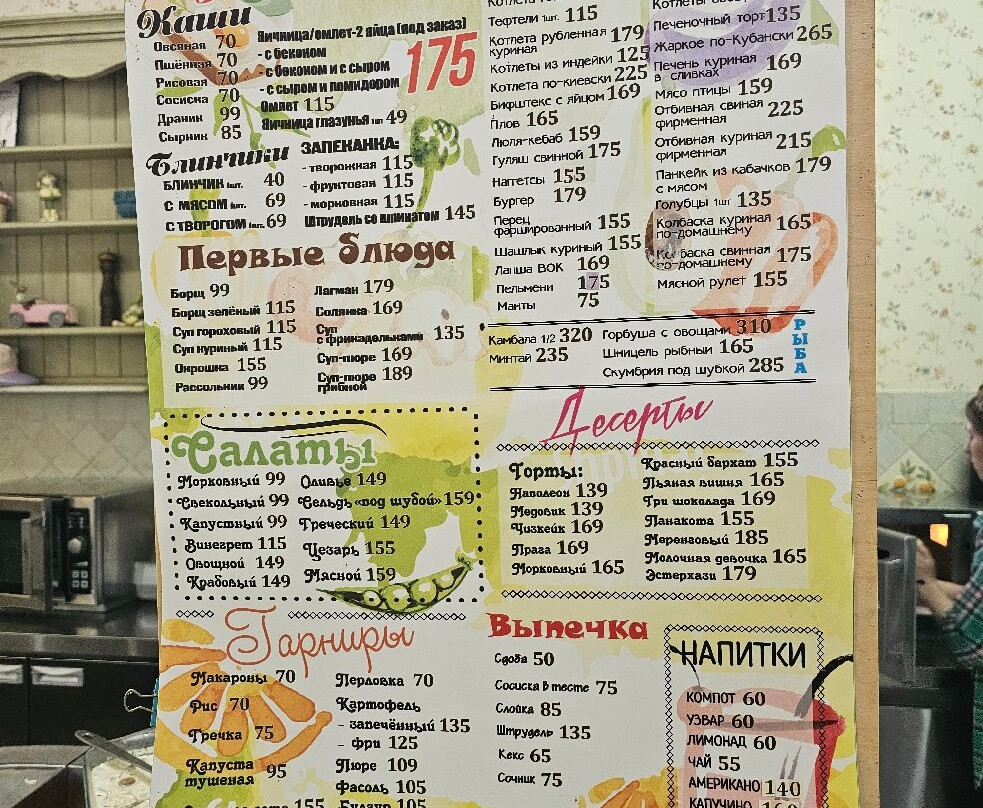 Каши
Овсяная 70
Пшённая 70
Рисовая 70
Сосиска 70
Драник 99
Сырник 85
Яичница/омлет-2 яйца (под заказ)
- с беконом
- с беконом и с сыром
- с сыром и помидором 175
Омлет 115
Яичница глазунья 1шт 49
Блинчики
БЛИНЧИК 1шт. 40
С МЯСОМ 1шт. 69
С ТВОРОГОМ 1шт. 69
ЗАПЕКАНКА:
- творожная 115
- фруктовая 115
- морковная 115
Штрудель со шпинатом 145
Первые блюда
Борщ 99
Борщ зелёный 115
Суп гороховый 115
Суп куриный 115
Окрошка 155
Рассольник 99
Лагман 179
Солянка 169
Суп
с фрикадельками 135
Суп-пюре 169
Суп-пюре 189
грибной
Салаты
Морковный 99
Свекольный 99
Капустный 99
Винегрет 115
Овощной 149
Крабовый 149
Оливье 149
Сельдь «под шубой» 159
Греческий 149
Цезарь 155
Мясной 159
Гарниры
Макароны 70
Рис 70
Гречка 75
Капуста
тушеная 95
155
Перловка 70
Картофель
- запечённый 135
- фри 125
Пюре 109
Фасоль 105
Булгур 105
Тефтели 1шт. 115
Котлета рубленная 179
куриная
Котлеты из индейки 125
Котлета по-киевски 225
Бифштекс с яйцом 169
Плов 165
Люля-кебаб 159
Гуляш свинной 175
Наггетсы 155
Бургер 179
Перец
фаршированный 155
Шашлык куриный 155
Лапша ВОК 169
Пельмени 175
Манты 75
Печеночный торт 135
Жаркое по-Кубански 265
Печень куриная 169
в сливках
Мясо птицы 159
Отбивная свиная 225
фирменная
Отбивная куриная 215
фирменная
Панкейк из кабачков 179
с мясом
Голубцы 1шт 135
Колбаска куриная 165
по-домашнему
Колбаска свинная 175
по-домашнему
Мясной рулет 155
РЫБА
Камбала 1/2 320
Минтай 235
Горбуша с овощами 310
Шницель рыбный 165
Скумбрия под шубкой 285
Десерты
Торты:
Наполеон 139
Медовик 139
Чизкейк 169
Прага 169
Морковный 165
Красный бархат 155
Пьяная вишня 165
Три шоколада 169
Панакота 155
Меренговый 185
Молочная девочка 165
Эстерхази 179
Выпечка
Сдоба 50
Сосиска в тесте 75
Слойка 85
Штрудель 135
Кекс 65
Сочник 75
НАПИТКИ
КОМПОТ 60
УЗВАР 60
ЛИМОНАД 60
ЧАЙ 55
АМЕРИКАНО 140
КАПУЧИНО